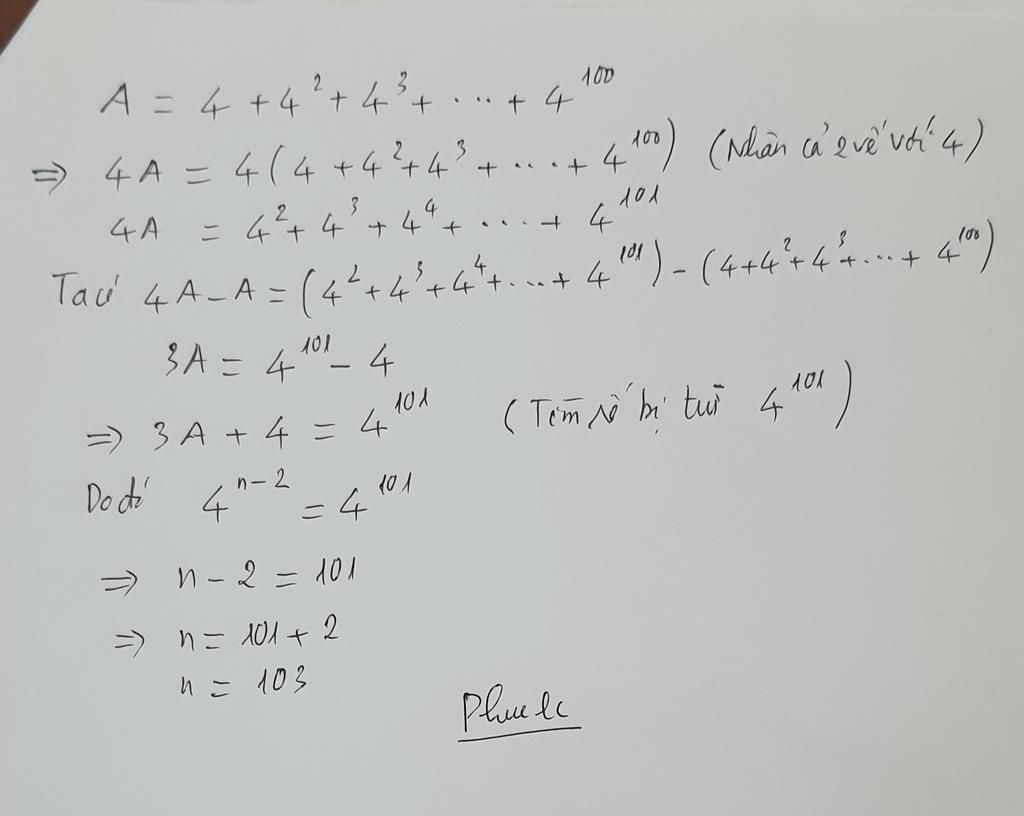 A = 4 + 4² + 4³ + ... + 4¹⁰⁰
⇒ 4A = 4(4 + 4² + 4³ + ... + 4¹⁰⁰) (Nhân cả 2 vế với 4)
4A = 4² + 4³ + 4⁴ + ... + 4¹⁰¹
Ta có 4A - A = (4² + 4³ + 4⁴ + ... + 4¹⁰¹) - (4 + 4² + 4³ + ... + 4¹⁰⁰)
3A = 4¹⁰¹ - 4
⇒ 3A + 4 = 4¹⁰¹ (Tìm số bị trừ 4¹⁰¹)
Do đó 4ⁿ⁻² = 4¹⁰¹
⇒ n - 2 = 101
⇒ n = 101 + 2
n = 103